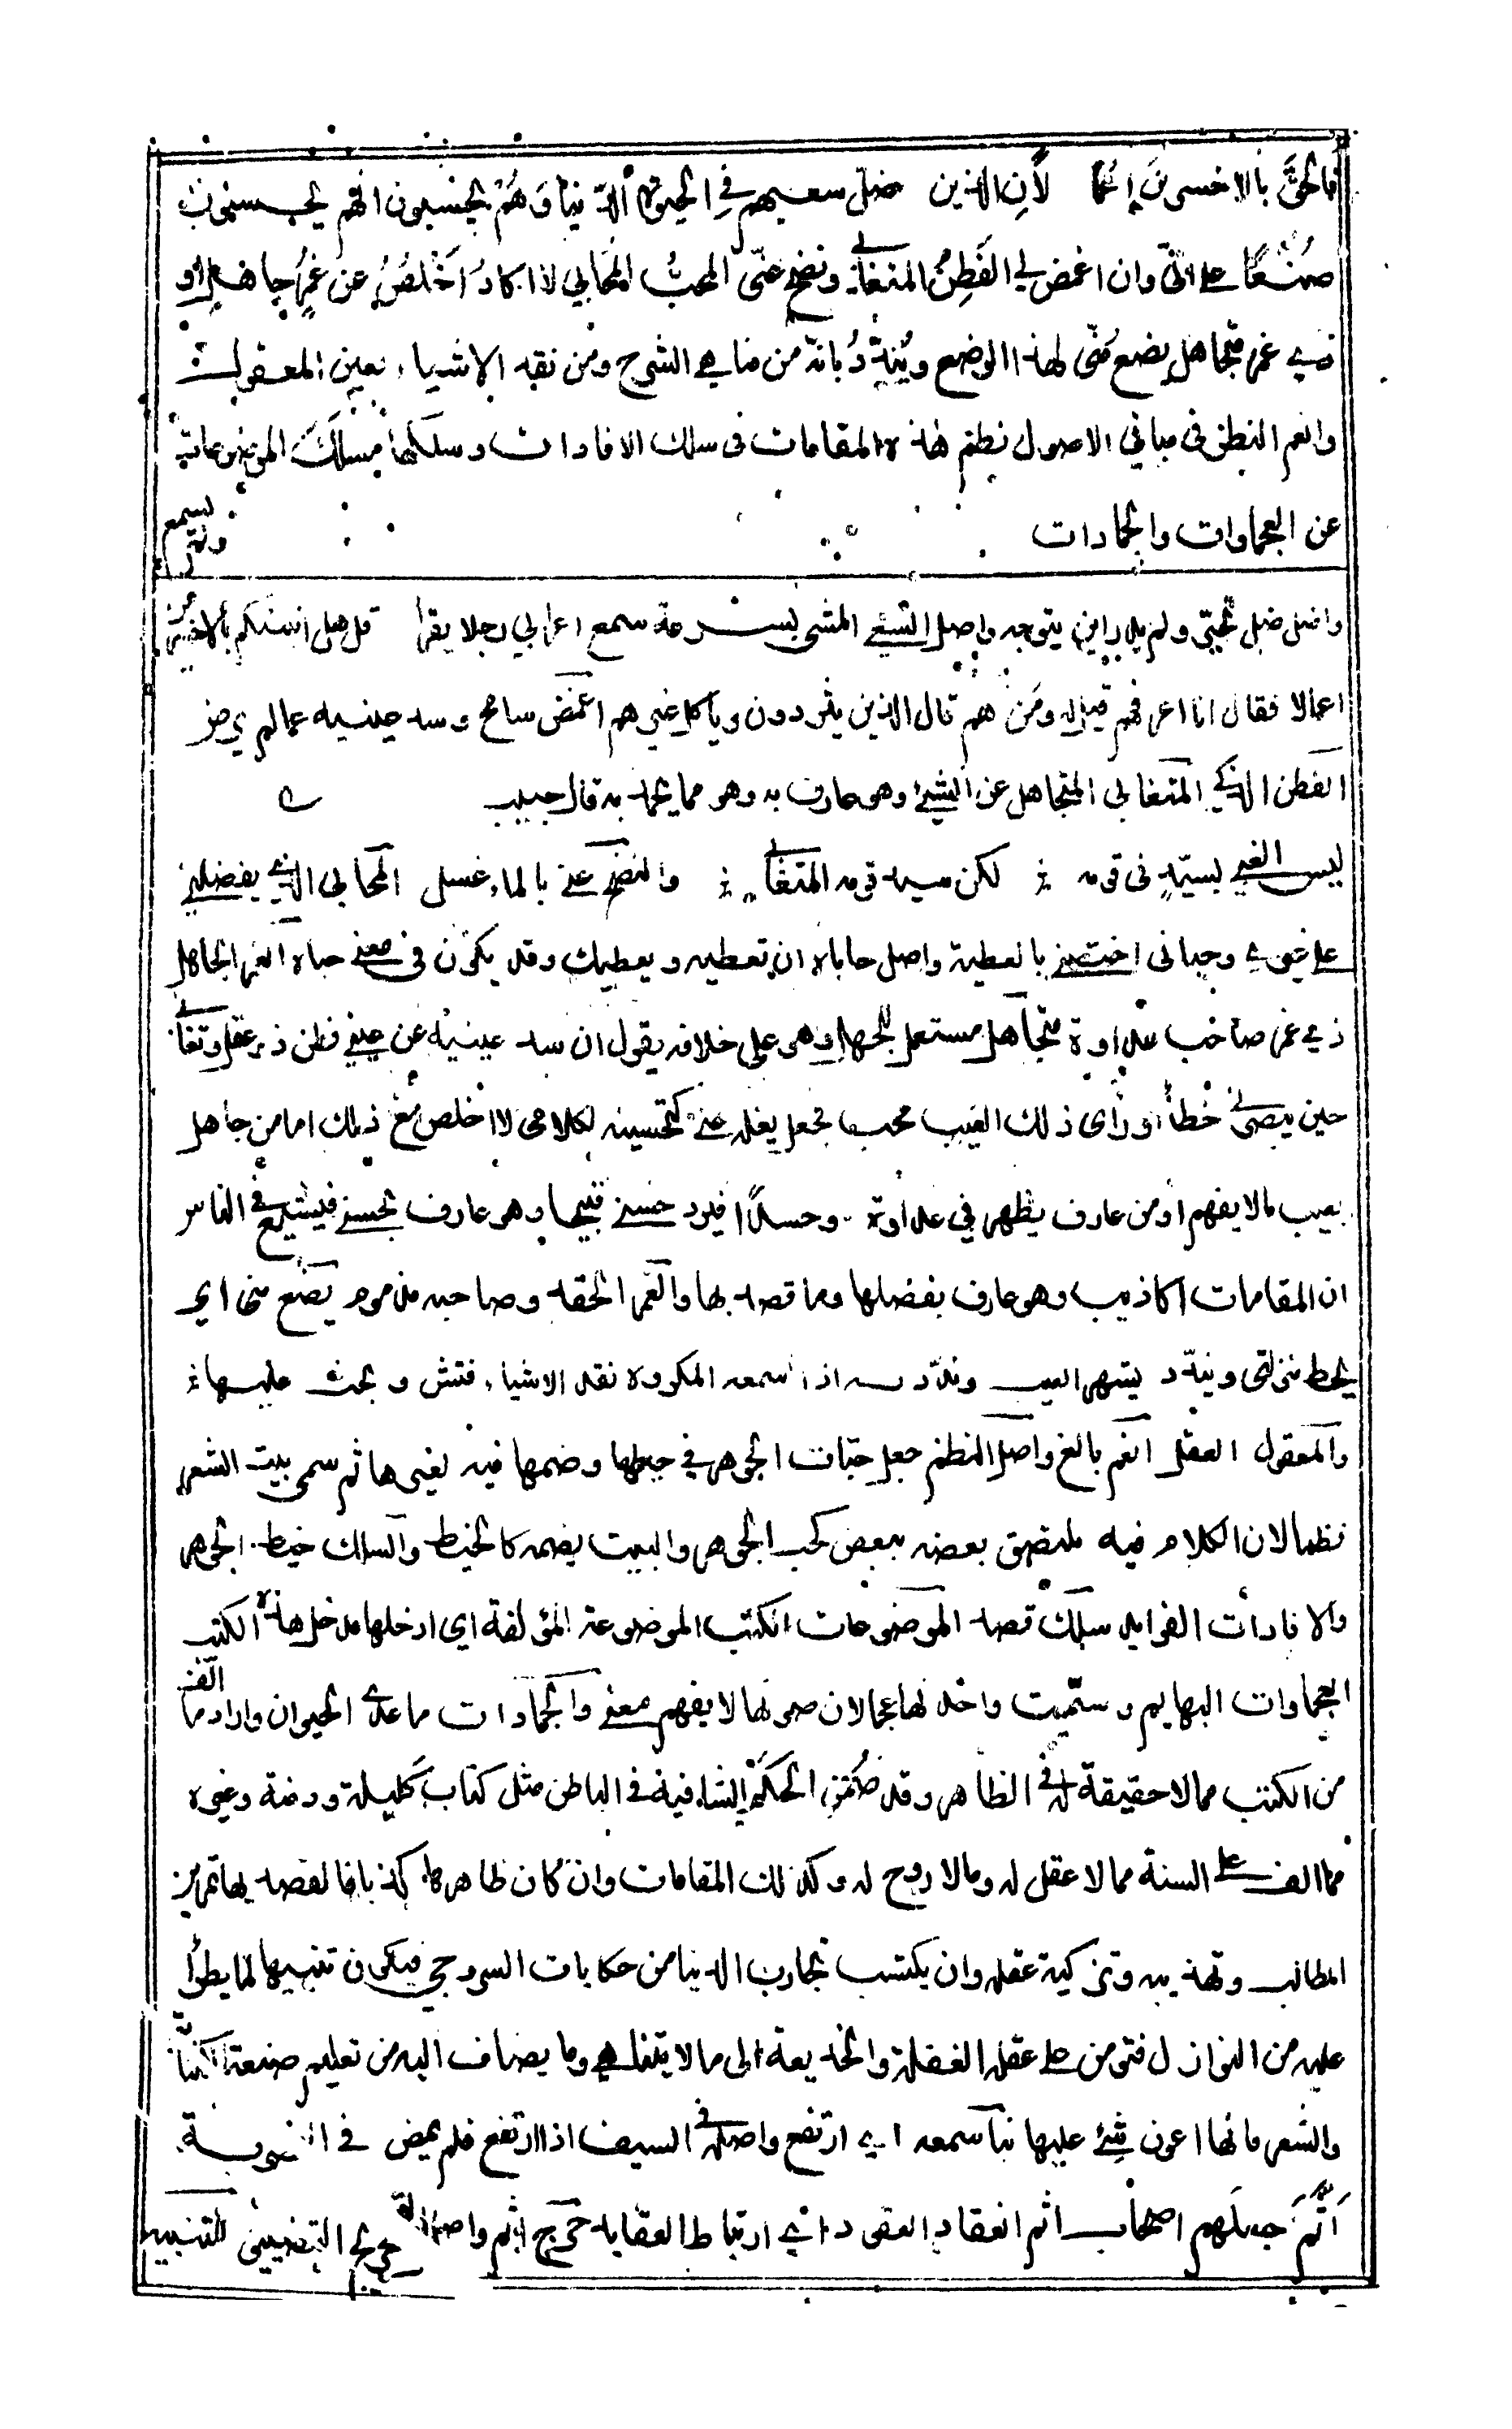 فالحق بالاخسرين اعمالا الذين ضل سعيهم في الحيوة الدنيا وهم يحسبون انهم يحسنون
صنعا على انى وان اغمض لي الفطن المتغابي ونضح عنى المحب المحابي لا اكاد اخلص من غمر جاهل او
ذي غمر متجاهل يضع منى لهذا الوضع ويندد بانه من مناهي الشرع ومن نقد الاشياء بعين المعقول
وانعم النظر في مباني الاصول نظم هذه المقامات في سلك الافادات وسلكها مسلك الموضوعات
عن العجماوات والجمادات
واصل ضل تحير ولم يدر اين يتوجه واصل السعي المشي بسرعة سمع اعرابي رجلا يقرأ قل هل انبئكم بالاخسرين
اعمالا فقال انا اعرفهم قيل له ومن هم قال الذين يثردون وياكل غيرهم اغمض سامح وسد عينيه عما لم يرض
الفطن الذكي المتغابي المتجاهل عن الشيئ وهو عارف به وهو مما يحمد به قال حبيب
ليس الغبي بسيد في قومه لكن سيد قومه المتغابي والنضح عني بالماء غسل المحابي الذي يفضلني
على غيري وحباني اختصني بالعطية واصل حاباه ان تعطيه ويعطيك وقد يكون في معنى حباه الغمر الجاهل
ذي غمر صاحب عداوة متجاهل مستعمل للجهل وهو على خلافه يقول ان سد عينيه عن عيبي فطن ذو عقل وتغابى
حين يبصر لي خطأ او رأى ذلك العيب محب فجعل يغسله عني كتحسينه لكلامي لا اخلص مع ذلك اما من جاهل
يعيب مالا يفهم او من عارف يظهر في عداوة وحسدا فيرد حسني قبيحا وهو عارف بحسنه فيشيع في الناس
ان المقامات اكاذيب وهو عارف بفضلها وما قصد بها والغمر الحقد وصاحبه مذموم يضع منى اي
يحط منزلتى ويندد يشهر العيب وندد به اذا اسمعه المكروه نقد الاشياء فتش وبحث عليها
والمعقول العقل انعم بالغ واصل النظم جعل حبات الجوهر في حبلها وضمها فيه لغيرها ثم سمي بيت الشعر
نظما لان الكلام فيه ملتصق بعضه ببعض كحب الجوهر والبيت يضمه كالخيط والسلك خيط الجوهر
والافادات الفوايد سلك قصد الموضوعات الكتب الموضوعة المؤلفة اي ادخلها مدخل هذه الكتب
العجماوات البهايم وسميت واحد لها عجما لان صوتها لا يفهم معنى والجمادات ما عدى الحيوان واراد ما الف
من الكتب مما لا حقيقة له في الظاهر وقد ضمن الحكمة الشافية في الباطن مثل كتاب كليلة ودمنة وغيره
مما الف على السنة مما لا عقل له ومالا روح له وكذلك المقامات وان كان ظاهرها كذبا فالقصد بها تمرين
الطالب وتهذيبه وتزكية عقله وان يكتسب تجارب الدنيا من حكايات السروجي فيكون تنبيها لما يطرأ
عليه من النوازل فتومن على عقله الغفلة والخديعة الى مالا يتناهي وما يضاف اليه من تعليم صنعة الكتابة
والشعر فانها اعون شيئ عليها نبا سمعه اي ارتفع واصله في السيف اذا ارتفع فلم يمض في الضريبة
اثم جعلهم اصحاب اثم انعقاد العقود اي ارتباط العقايد حرج اثم واصله الضيق للتنبيه